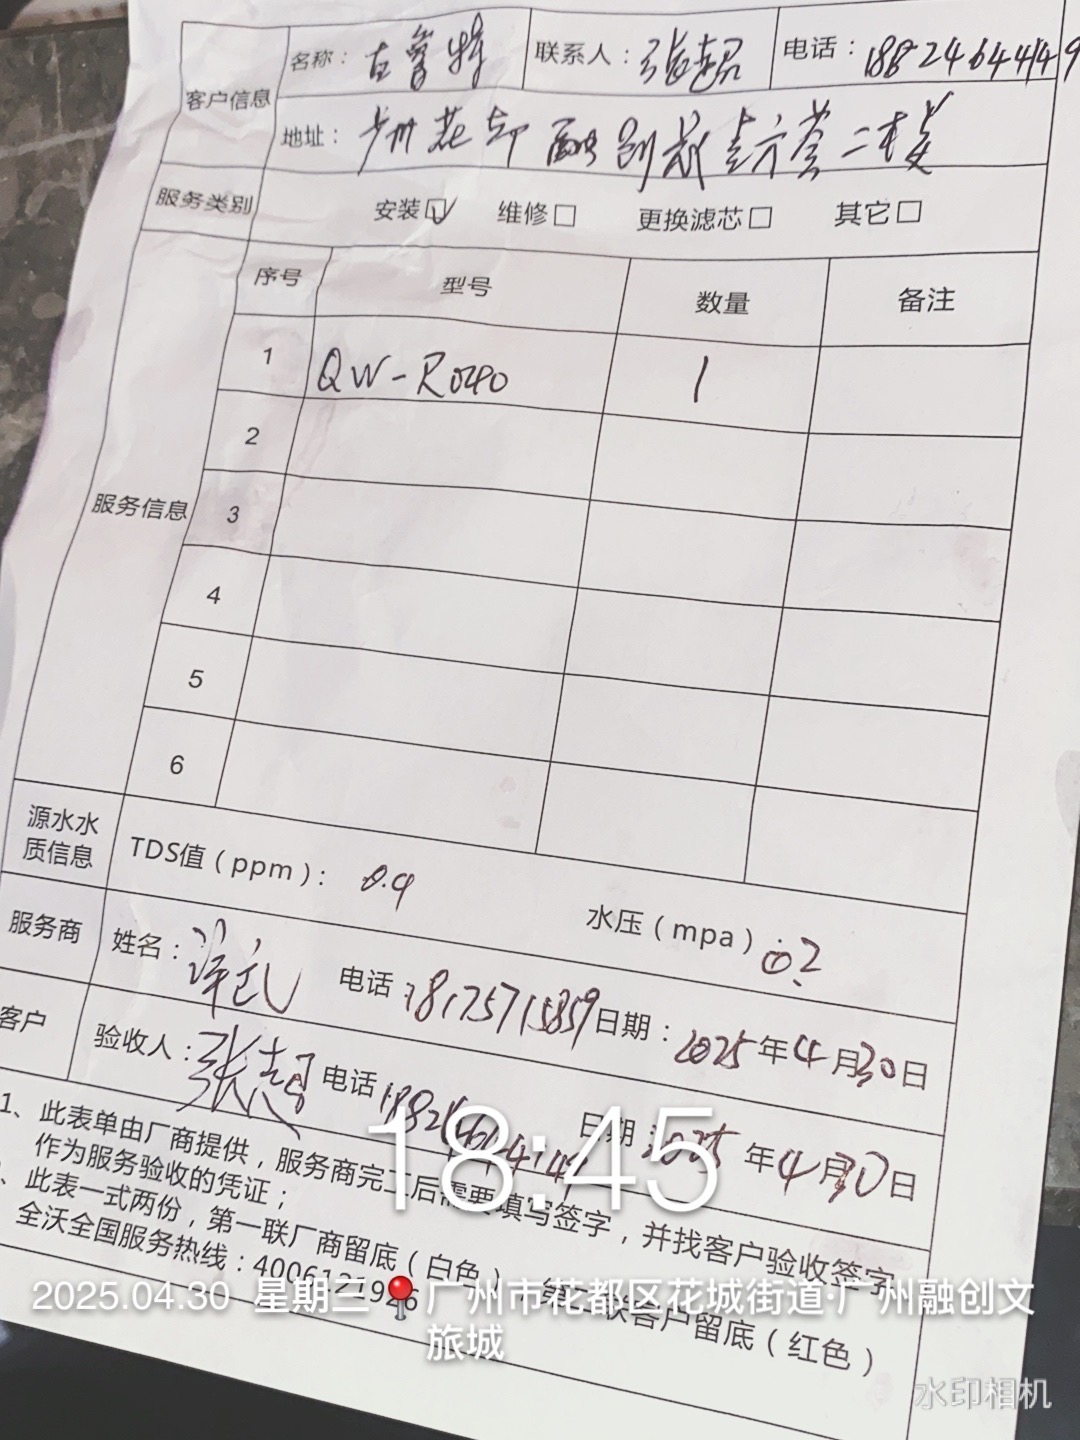 客户信息 名称： 联系人：张超 电话：18824644149
地址：广州花都融创 二楼
服务类别 安装☑ 维修□ 更换滤芯□ 其它□
服务信息 序号 型号 数量 备注
1 QW-R040 1
2
3
4
5
6
源水水质信息 TDS值（ppm）：0.9 水压（mpa） 0.2
服务商 姓名： 电话：18175715859 日期：2025年4月30日
客户 验收人：张超 电话：18824644149 日期：2025年4月30日
1、此表单由厂商提供，服务商完工后需要填写签字，并找客户验收签字
作为服务验收的凭证；
、此表一式两份，第一联厂商留底（白色），第二联客户留底（红色）
全沃全国服务热线：4006121926
18:45
2025.04.30 星期三 广州市花都区花城街道·广州融创文
旅城
水印相机